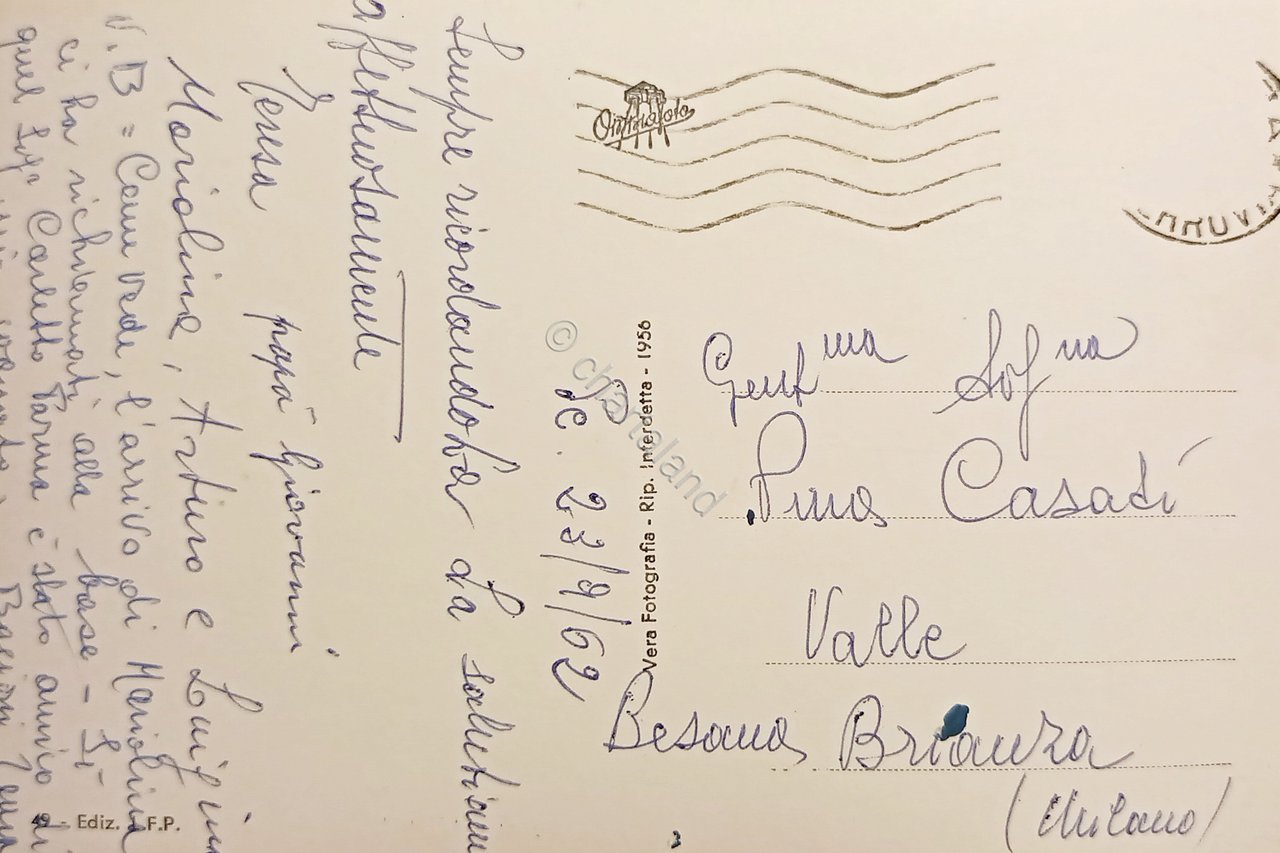 C. 23/9/62
Sempre ricordandola La salutiam
affettuosamente
Teresa papà Giovanni
Mariolina, Arturo e Luigin
N.B = Come vede, l'arrivo di Mariolina
ci ha richiamati alla base - Il
quel Sig. Carletto Parma è stato amico di
Optima foto
RRUVI
Gent.ma Sig.na
Pina Casati
Valle
Besana Brianza
(Milano)
Vera Fotografia - Rip. Interdetta - 1956
49 - Ediz. F.P.
© chartaland